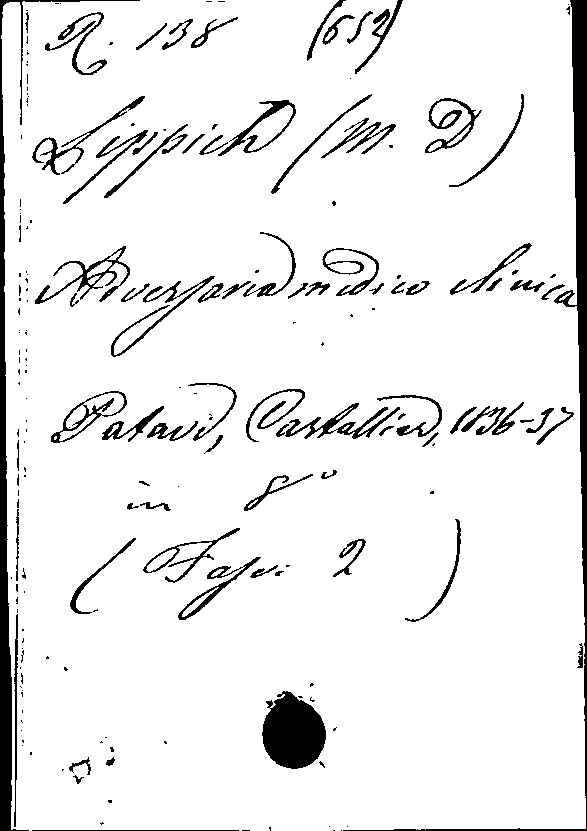 R. 138 (652)
Lippich (M. D)
Adversaria medico clinica
Patavi, Cartallier, 1836-37
in 8º
(Fasc. 2)